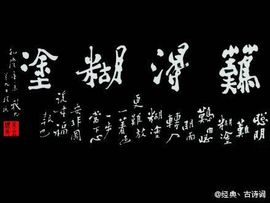 難得糊塗
聰明
難
糊塗
難由聰
明而
轉入
糊塗
更難放
一著
一步
當下心
安非圖
福
報也
@经典、古诗词